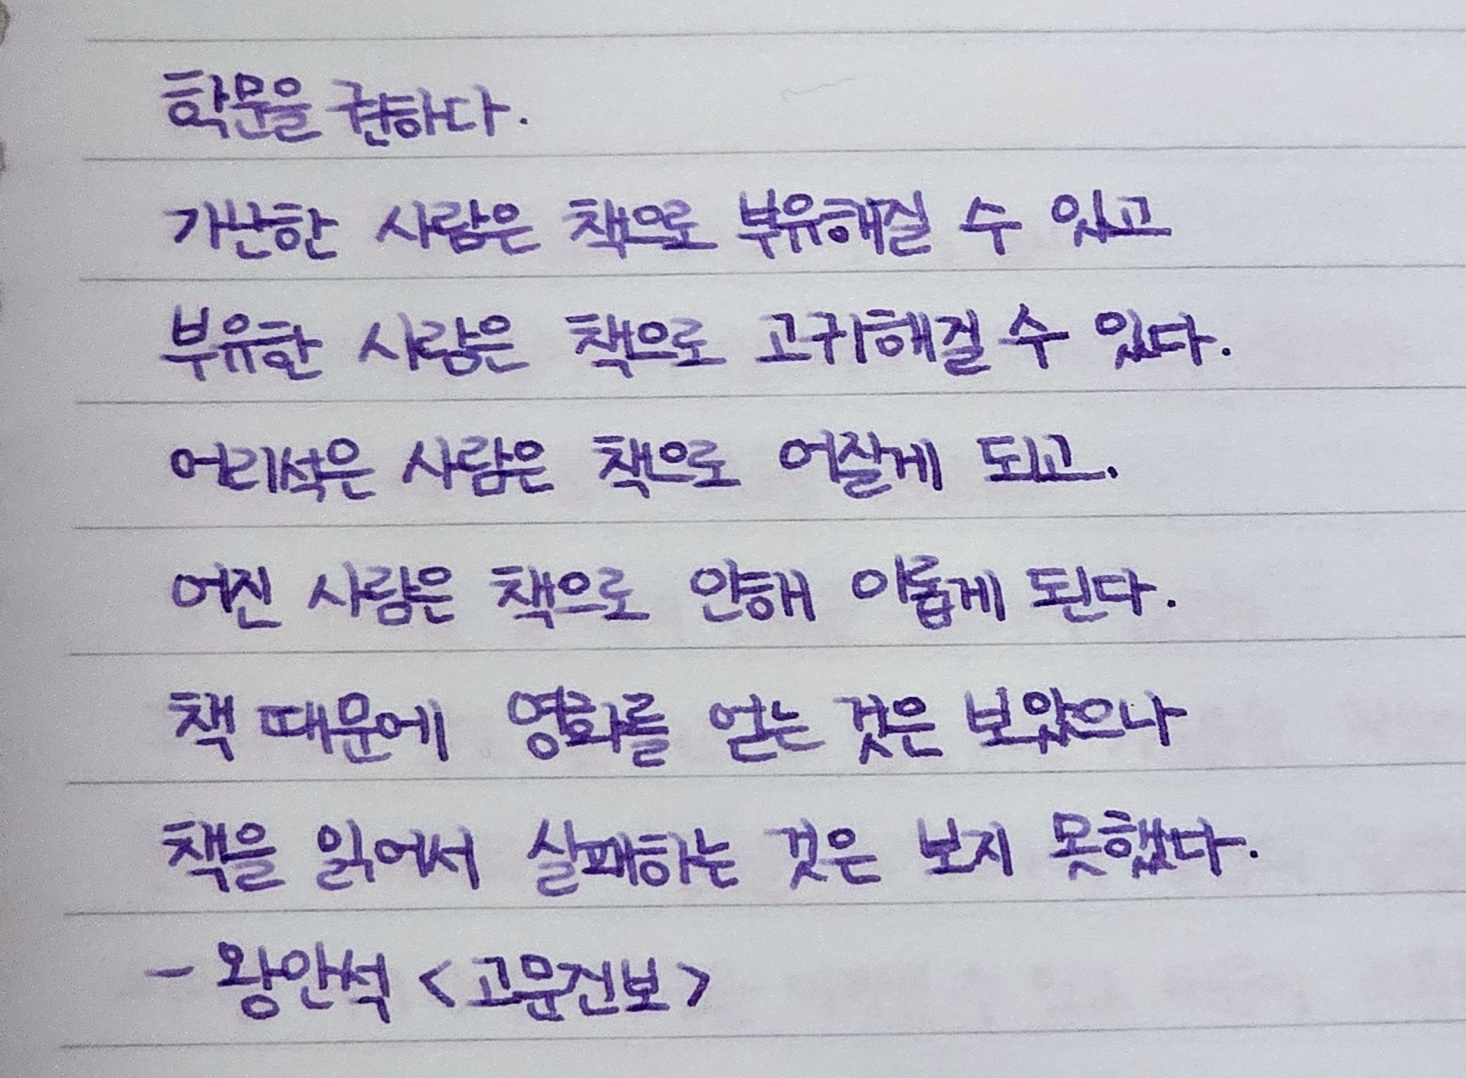 학문을 권하다.
가난한 사람은 책으로 부유해질 수 있고
부유한 사람은 책으로 고귀해질 수 있다.
어리석은 사람은 책으로 어질게 되고.
어진 사람은 책으로 인해 이롭게 된다.
책 때문에 영화를 얻는 것은 보았으나
책을 읽어서 실패하는 것은 보지 못했다.
- 왕안석 <고문진보>